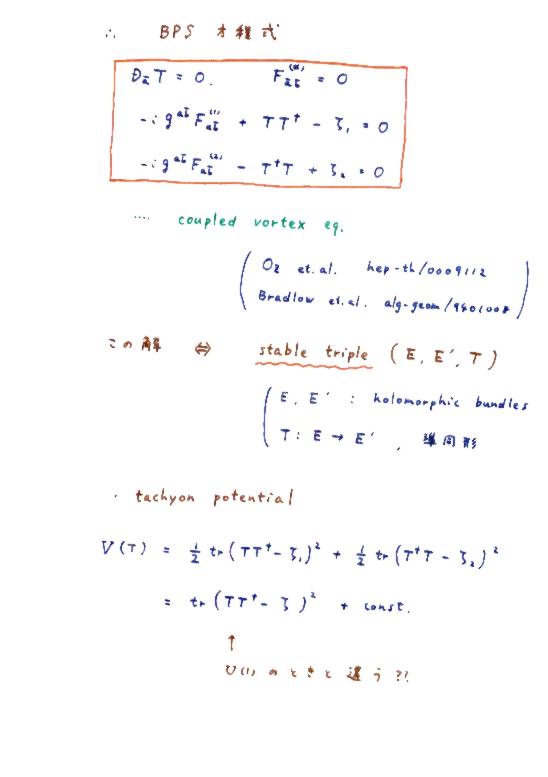 ∴ BPS 方程式
D_ā T = 0. F_āb̄^(α) = 0
-i g^ab̄ F_ab̄^(1) + TT† - ζ₁ = 0
-i g^ab̄ F_ab̄^(2) - T†T + ζ₂ = 0
.... coupled vortex eq.
Oz et.al. hep-th/0009112
Bradlow et.al. alg-geom/9401008
この解 ⇔ stable triple (E, E', T)
E, E' : holomorphic bundles
T : E → E' , 準同形
· tachyon potential
V(T) = ½ tr(TT† - ζ₁)² + ½ tr(T†T - ζ₂)²
= tr(TT† - ζ)² + const.
↑
U(1) のときと違う??